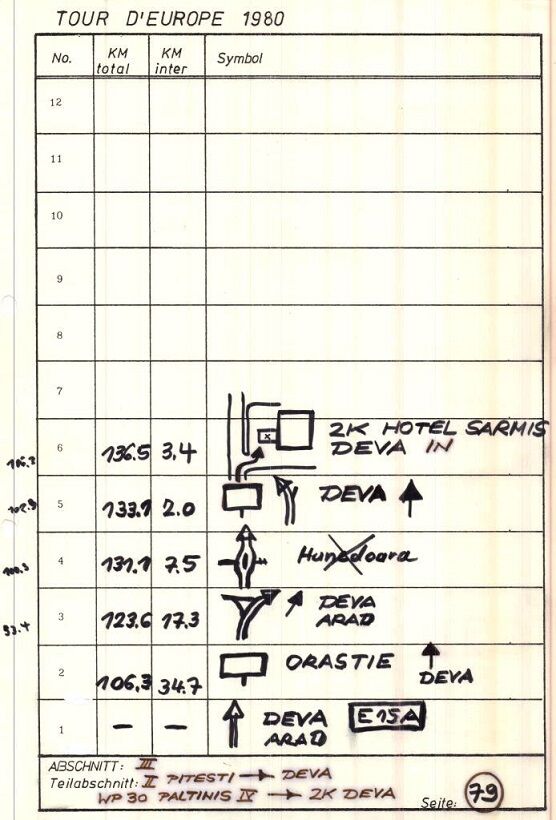 TOUR D'EUROPE 1980
No. KM total KM inter Symbol
12
11
10
9
8
7
6 136.5 3.4 ZK HOTEL SARMIS
DEVA IN
5 133.1 2.0 DEVA
4 131.1 7.5 Hunedoara
3 123.6 17.3 DEVA
ARAD
2 106.3 34.7 ORASTIE DEVA
1 — — DEVA E15A
ARAD
ABSCHNITT: III
Teilabschnitt: II PITESTI → DEVA
WP 30 PALTINIS IV → ZK DEVA
Seite: 79